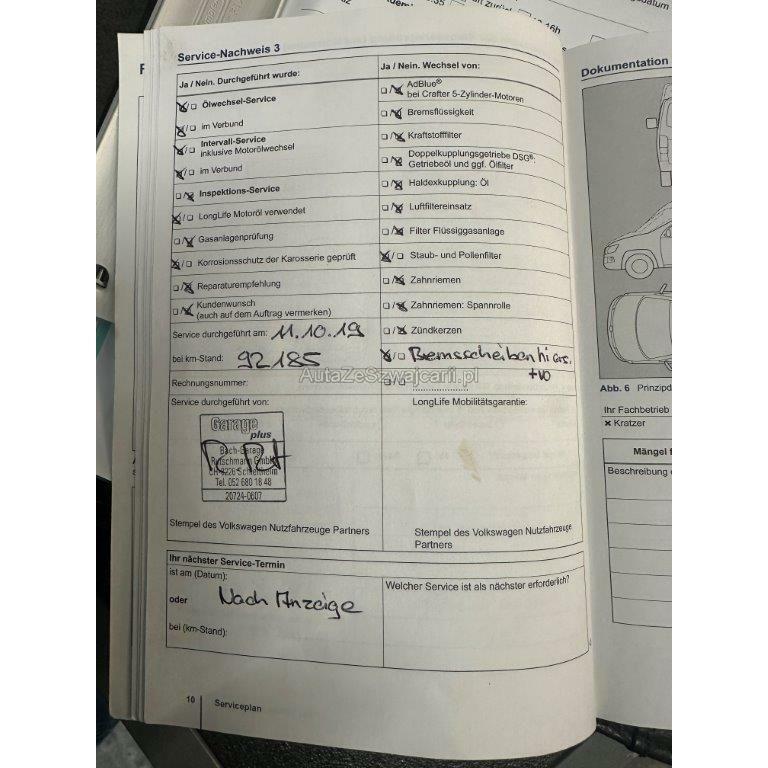 Service-Nachweis 3
Ja / Nein. Durchgeführt wurde:
Ölwechsel-Service
im Verbund
Intervall-Service
inklusive Motorölwechsel
im Verbund
Inspektions-Service
LongLife Motoröl verwendet
Gasanlagenprüfung
Korrosionsschutz der Karosserie geprüft
Reparaturempfehlung
Kundenwunsch
(auch auf dem Auftrag vermerken)
Service durchgeführt am: 11.10.19
bei km-Stand: 92185
Rechnungsnummer:
Ja / Nein. Wechsel von:
AdBlue®
bei Crafter 5-Zylinder-Motoren
Bremsflüssigkeit
Kraftstofffilter
Doppelkupplungsgetriebe DSG®:
Getriebeöl und ggf. Ölfilter
Haldexkupplung: Öl
Luftfiltereinsatz
Filter Flüssiggasanlage
Staub- und Pollenfilter
Zahnriemen
Zahnriemen: Spannrolle
Zündkerzen
Bremsscheiben hi
+vo
AutaZeSzwajcarii.pl
Service durchgeführt von:
Garage
plus
Bach-Garage
Rutschmann GmbH
CH-8226 Schleitheim
Tel. 052 680 18 48
20724-0607
Stempel des Volkswagen Nutzfahrzeuge Partners
LongLife Mobilitätsgarantie:
Stempel des Volkswagen Nutzfahrzeuge
Partners
Ihr nächster Service-Termin
ist am (Datum):
oder Nach Anzeige
bei (km-Stand):
Welcher Service ist als nächster erforderlich?
10 Serviceplan
Dokumentation
Abb. 6 Prinzipd
Ihr Fachbetrieb
× Kratzer
Mängel f
Beschreibung